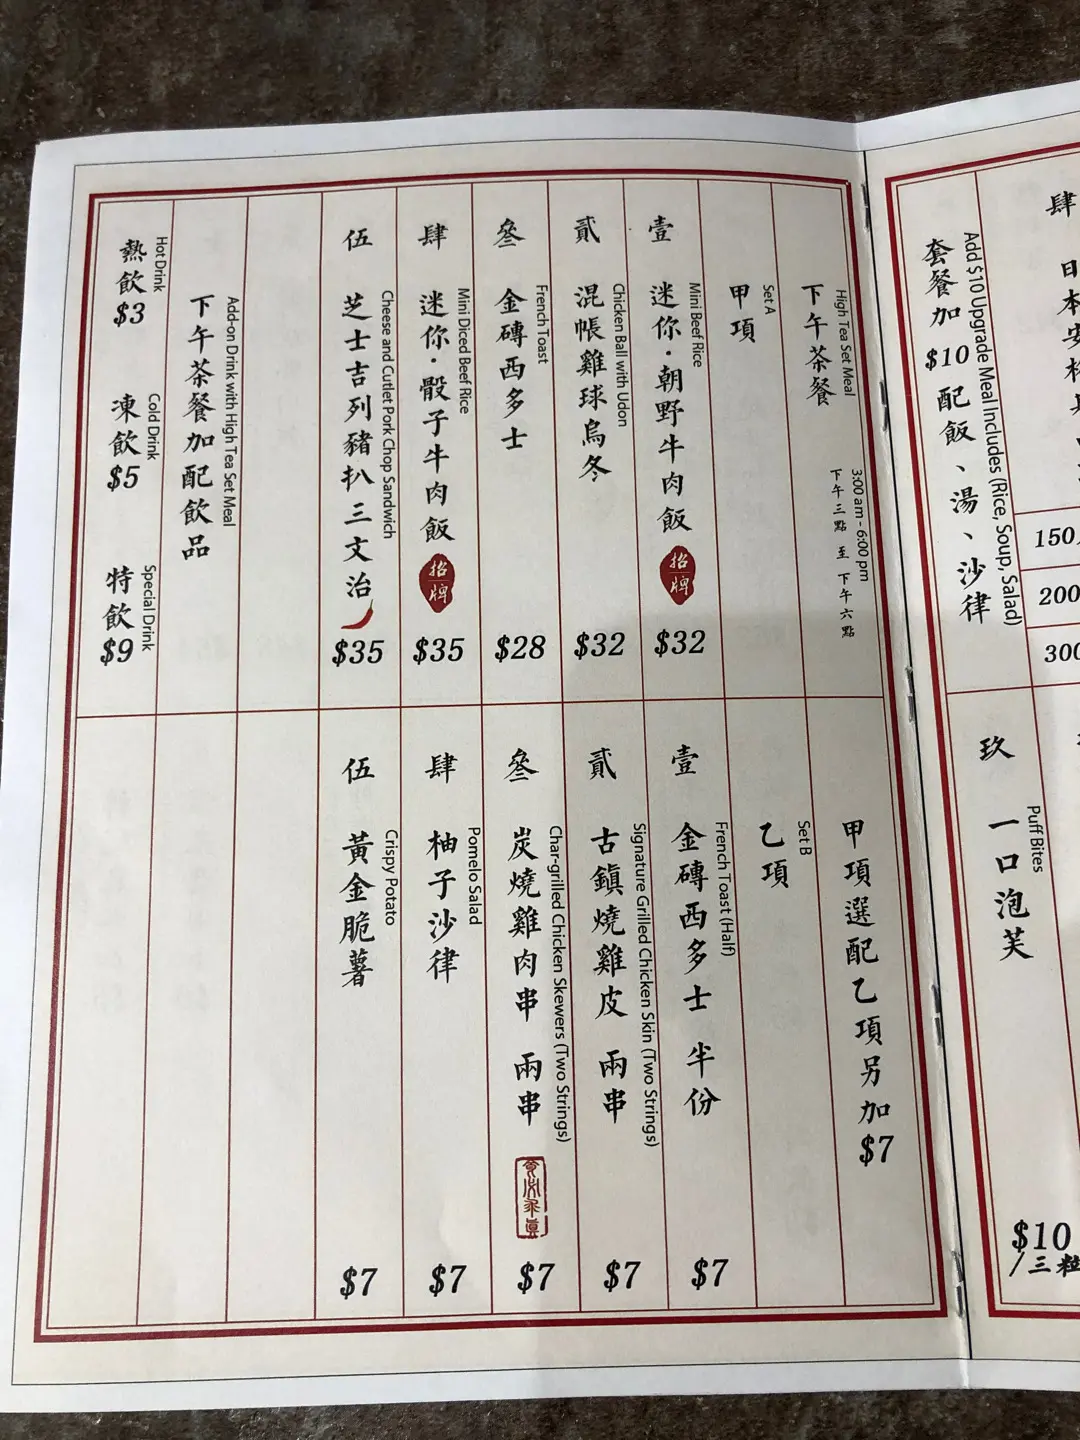 肆
日本安格
150
200
300
Add $10 Upgrade Meal Includes (Rice, Soup, Salad)
套餐加 $10 配飯、湯、沙律
Puff Bites
玖 一口泡芙
$10
/三粒
High Tea Set Meal
下午茶餐
3:00 am - 6:00 pm
下午三點 至 下午六點
甲項選配乙項另加 $7
Set A
甲項
Mini Beef Rice
壹 迷你·朝野牛肉飯 招牌 $32
Chicken Ball with Udon
貳 混帳雞球烏冬 $32
French Toast
叄 金磚西多士 $28
Mini Diced Beef Rice
肆 迷你·骰子牛肉飯 招牌 $35
Cheese and Cutlet Pork Chop Sandwich
伍 芝士吉列豬扒三文治 $35
Set B
乙項
French Toast (Half)
壹 金磚西多士 半份 $7
Signature Grilled Chicken Skin (Two Strings)
貳 古鎮燒雞皮 兩串 $7
Char-grilled Chicken Skewers (Two Strings)
叄 炭燒雞肉串 兩串 $7
Pomelo Salad
肆 柚子沙律 $7
Crispy Potato
伍 黃金脆薯 $7
Add-on Drink with High Tea Set Meal
下午茶餐加配飲品
Hot Drink
熱飲 $3
Cold Drink
凍飲 $5
Special Drink
特飲 $9